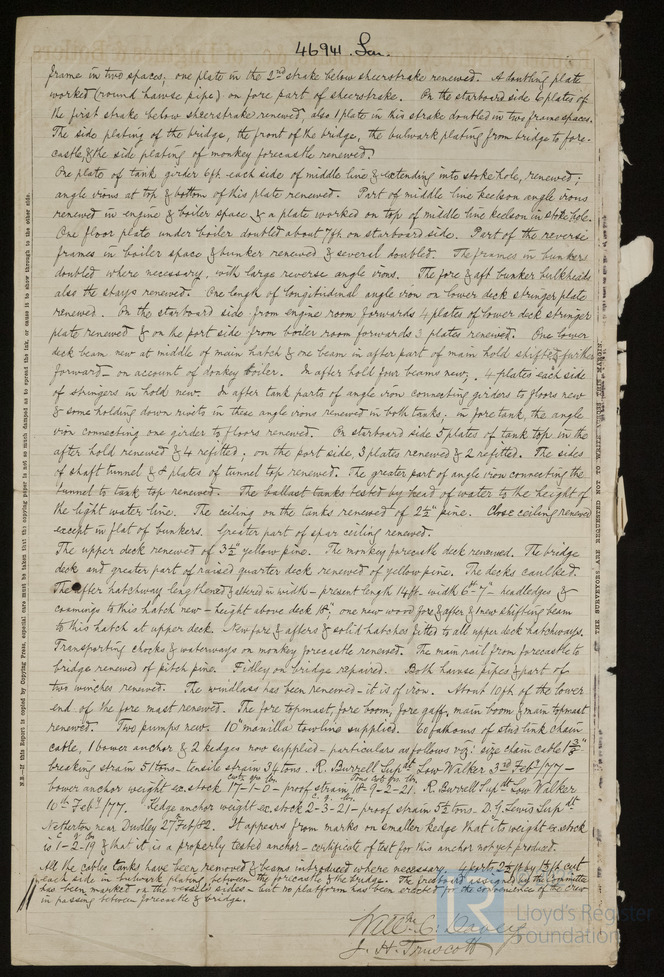 46941 Lon.
frame in two spaces; one plate in the 2nd strake below sheerstrake renewed. A doubling plate
worked (round hawse pipe) on fore part of sheerstrake. On the starboard side 6 plates of
the first strake below sheerstrake renewed, also 1 plate in this strake doubled in two frame spaces.
The side plating of the bridge, the front of the bridge, the bulwark plating from bridge to fore-
castle, & the side plating of monkey forecastle renewed.
One plate of tank girder 6ft. each side of middle line & extending into stokehole, renewed;
angle irons at top & bottom of this plate renewed. Part of middle line keelson angle irons
renewed in engine & boiler space & a plate worked on top of middle line keelson in stokehole.
One floor plate under boiler doubled about 7ft. on starboard side. Part of the reverse
frames in boiler space & bunker renewed & several doubled. The frames in bunkers
doubled where necessary, with large reverse angle irons. The fore & aft bunker bulkheads
also the stays renewed. One length of longitudinal angle iron on lower deck stringer plate
renewed. On the starboard side from engine room forwards 4 plates of lower deck stringer
plate renewed & on the port side from boiler room forwards 3 plates renewed. One lower
deck beam new at middle of main hatch & one beam in after part of main hold shifted further
forward on account of donkey boiler. In after hold four beams new, 4 plates each side
of stringers in hold new. In after tank parts of angle iron connecting girders to floors new
& some holding down rivets in these angle irons renewed in both tanks; in fore tank, the angle
iron connecting one girder to floors renewed. On starboard side 5 plates of tank top in the
after hold renewed & 4 refitted; on the port side, 3 plates renewed & 2 refitted. The sides
of shaft tunnel & plates of tunnel top renewed. The greater part of angle iron connecting the
tunnel to tank top renewed. The ballast tanks tested by head of water to the height of
the light water line. The ceiling on the tanks renewed of 2½" pine. Close ceiling renewed
except in flat of bunkers. Greater part of spar ceiling renewed.
The upper deck renewed of 3½" yellow pine. The monkey forecastle deck renewed. The bridge
deck and greater part of raised quarter deck renewed of yellow pine. The decks caulked.
The after hatchway lengthened & altered in width - present length 14ft. width 6ft-7in - headledges &
coamings to this hatch new - height above deck; one new wood fore & after & new shifting beam
to this hatch at upper deck. New fore & afters & solid hatches fitted to all upper deck hatchways.
Transporting chocks & waterways on monkey forecastle renewed. The main rail from forecastle to
bridge renewed of pitch pine. Fidley on bridge repaired. Both hawse pipes & part of
two winches renewed. The windlass has been renewed - it is of iron. About 10ft of the lower
end of the fore mast renewed. The fore topmast, fore boom, fore gaff, main boom & main topmast
renewed. Two pumps new. 10" manilla towline supplied. 60 fathoms of stud link chain
cable, 1 bower anchor & 2 kedges now supplied - particulars as follows viz: size chain cable
breaking strain 51 tons - tensile strain 34 tons. R. Burrell Supdt Low Walker 3rd Feby /77 -
bower anchor weight ex. stock 17-1-0 - proof strain 18-9-2-21. R. Burrell Supdt Low Walker
10th Feby /77. Kedge anchor weight ex. stock 2-3-21 - proof strain 5½ tons - D. G. Lewis Supdt
Netherton near Dudley 27th Feby /82. It appears from marks on smaller kedge that its weight ex stock
is 1-2-19 & that it is a properly tested anchor - certificate of test for this anchor not yet produced.
All the cables, tanks have been removed & beams introduced where necessary. 4 ports 2½ft by 1½ft cut
each side in bulwark plating between the forecastle & the bridge. The freeboard assigned by the Committee
has been marked on the vessel's sides - but no platform has been erected for the convenience of the crew
in passing between forecastle & bridge.
J. H. Truscott
N.B.—If this Report is copied by Copying Press, especial care must be taken that the copying paper is not so much damped as to spread the ink, or cause it to show through to the other side.
THE SURVEYORS ARE REQUESTED NOT TO WRITE THIS MARGIN.
Lloyd's Register
Foundation